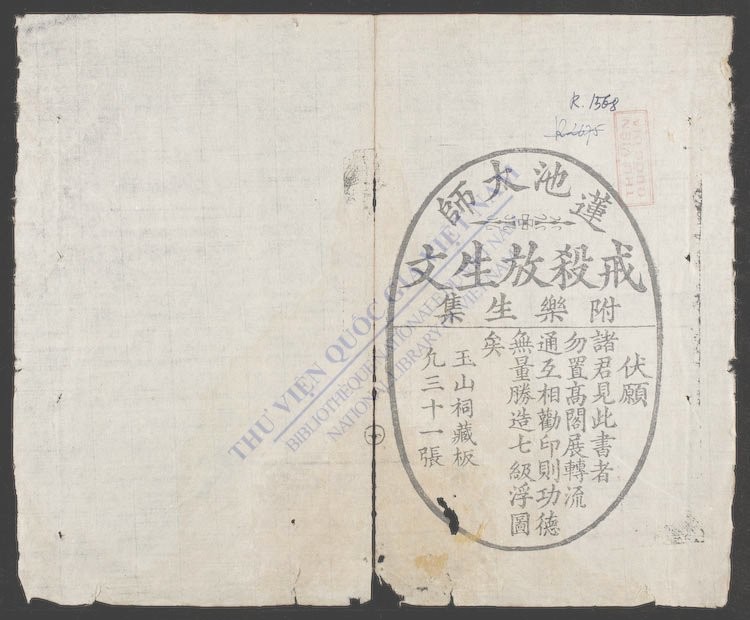 R. 1568
蓮池大師
戒殺放生文
附樂生集
伏願
諸君見此書者
勿置高閣展轉流
通互相勸印則功德
無量勝造七級浮圖
矣
玉山祠藏板
九三十一張
THƯ VIỆN QUỐC GIA VIỆT NAM
BIBLIOTHÈQUE NATIONALE DU VIETNAM
NATIONAL LIBRARY OF VIETNAM